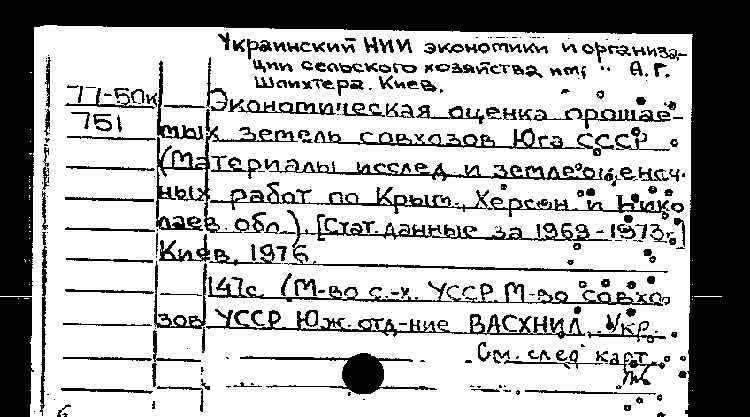 Украинский НИИ экономики и организа-
ции сельского хозяйства им. А.Г.
Шлихтера. Киев.
77-50к Экономическая оценка орошае-
751 мых земель совхозов Юга СССР
(Материалы исслед и землеоценоч-
ных работ по Крым., Херсон. и Нико
лаев. обл.). [Стат. данные за 1969-1973г.]
Киев, 1976.
147с. (М-во с.-х. УССР. М-во совхо.
зов УССР Юж. отд-ние ВАСХНИЛ, Укр.
См. след карт.